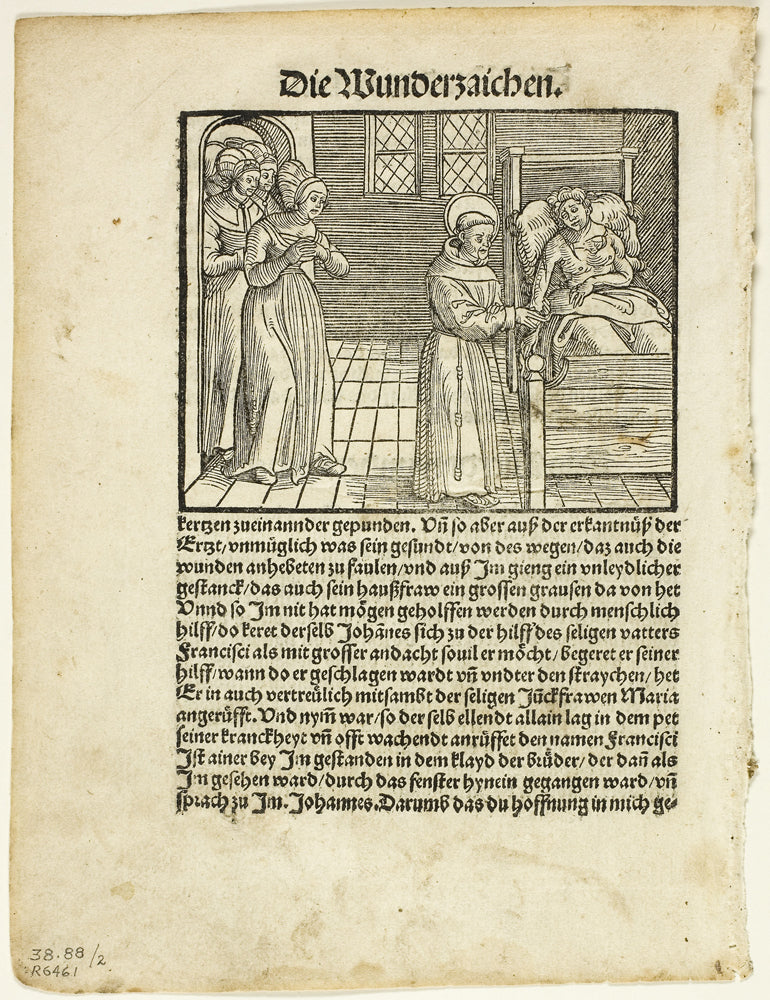 Die Wunderzaichen.
kertzen zueinannder gepunden. Vn̄ so aber auß der erkantnüß der
Ertzt/vnmüglich was sein gesundt/von des wegen/daz auch die
wunden anhebeten zu faulen/vnd auß Jm gieng ein vnleydlicher
gestanck/das auch sein haußfraw ein grossen grausen da von het
Vnnd so Jm nit hat mögen geholffen werden durch menschlich
hilff/do keret derselb Johānes sich zu der hilff des seligen vatters
Francisci als mit grosser andacht souil er möcht/begeret er seiner
hilff/wann do er geschlagen wardt vn̄ vndter den straychen/het
Er in auch vertreülich mitsambt der seligen Jūckfrawen Maria
angerüfft. Vnd nym̄ war/so der selb ellendt allain lag in dem pet
seiner kranckheyt vn̄ offt wachendt anrüffet den namen Francisci
Jst ainer bey Jm gestanden in dem klayd der brüder/der dan̄ als
Jm gesehen ward/durch das fenster hynein gegangen ward/vn̄
sprach zu Jm. Johannes. Darumb das du hoffnung in mich ge-
38.88/2
R6461